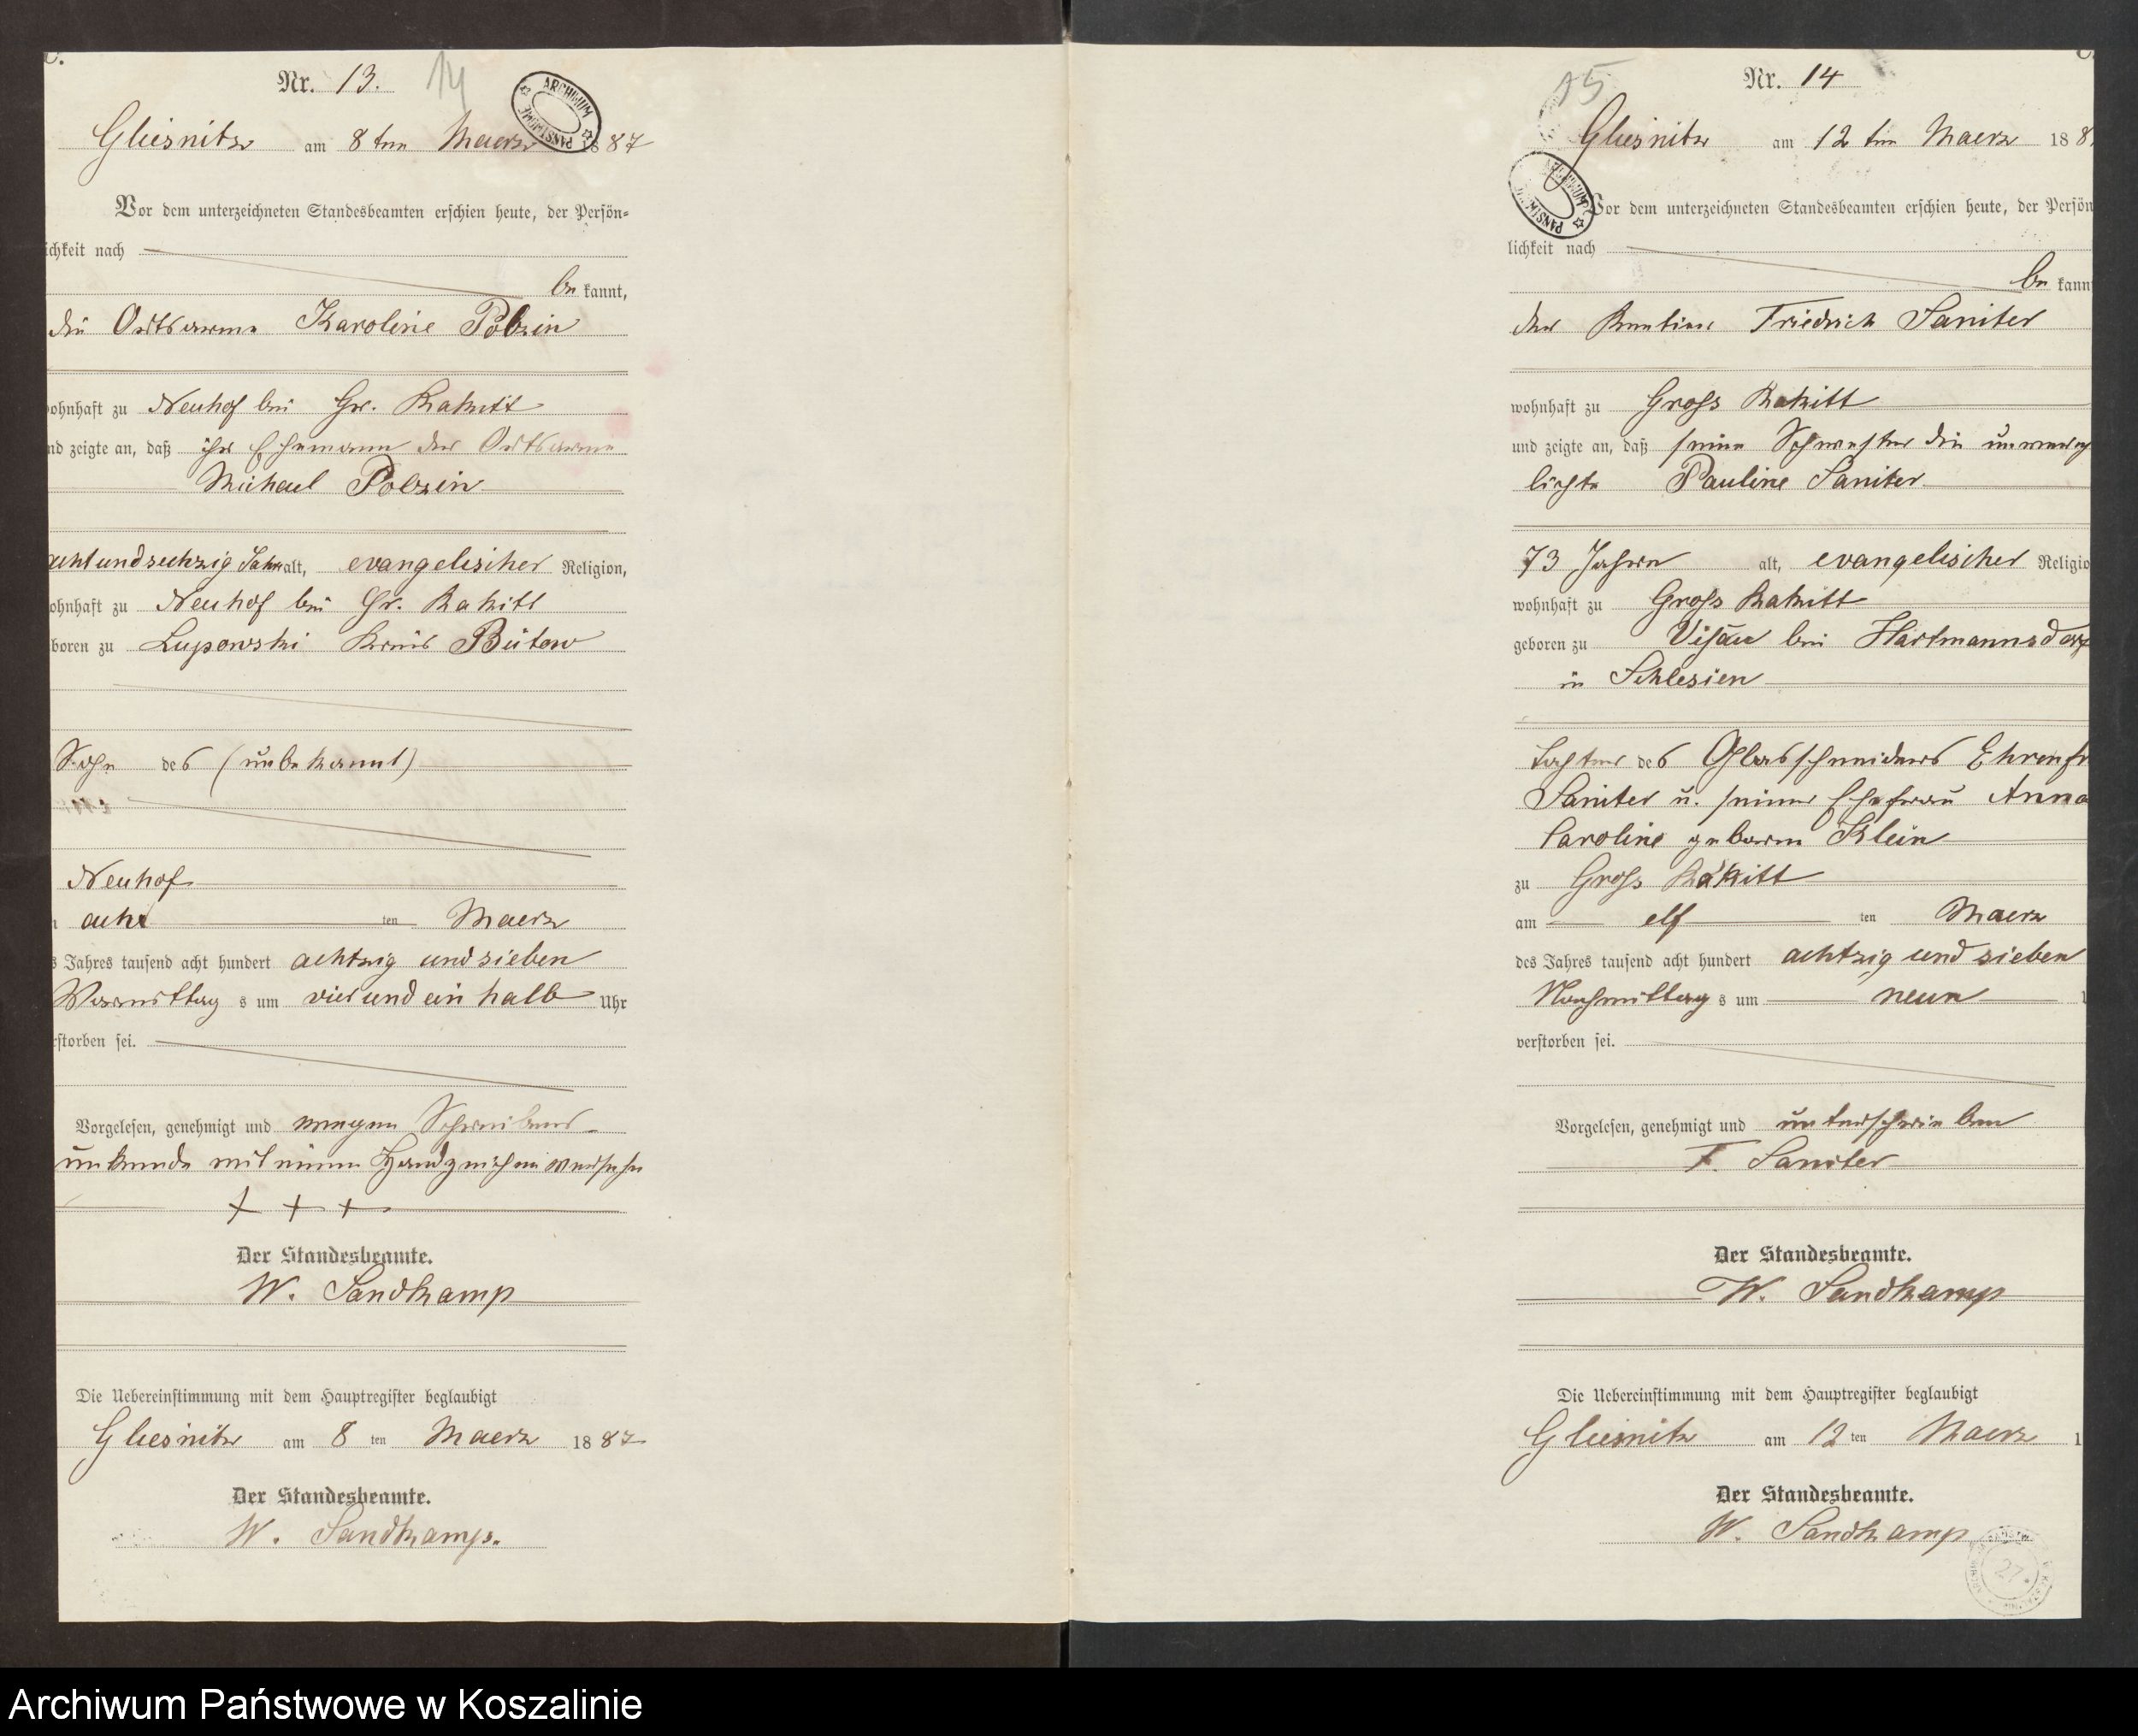 Nr. 13. 14
ARCHIWUM PAŃSTWOWE
Gliesnitz am 8 ten Maerz 1887
Vor dem unterzeichneten Standesbeamten erschien heute, der Persön=
ichkeit nach
be kannt,
die Ortsarme Karoline Polzin
ohnhaft zu Neuhof bei Gr. Rakitt
nd zeigte an, daß ihr Ehemann der Ortsarme
Michael Polzin
achtundsechzig Jahr alt, evangelischer Religion,
ohnhaft zu Neuhof bei Gr. Rakitt
boren zu Lupowski Kreis Bütow
Sohn des (unbekannt)
Neuhof
acht ten Maerz
s Jahres tausend acht hundert achtzig und sieben
Vormittag s um vier und ein halb Uhr
rstorben sei.
Vorgelesen, genehmigt und wegen Schreibens-
unkunde mit einem Handzeichen versehen
+ + +
Der Standesbeamte.
W. Sandkamp
Die Uebereinstimmung mit dem Hauptregister beglaubigt
Gliesnitz am 8 ten Maerz 1887
Der Standesbeamte.
W. Sandkamp.
15 Nr. 14
Gliesnitz am 12 ten Maerz 188
Vor dem unterzeichneten Standesbeamten erschien heute, der Persön
lichkeit nach
be kann
der Rentier Friedrich Saniter
wohnhaft zu Gross Rakitt
und zeigte an, daß seine Schwester die unvereh
lichte Pauline Saniter
73 Jahre alt, evangelischer Religio
wohnhaft zu Gross Rakitt
geboren zu bei Hartmannsdorf
in Schlesien
Tochter des Glasschneiders Ehrenfr
Saniter u. seiner Ehefrau Anna
Caroline geboren Klein
zu Gross Rakitt
am elf ten Maerz
des Jahres tausend acht hundert achtzig und sieben
Nachmittag s um neun
verstorben sei.
Vorgelesen, genehmigt und unterschrieben
F. Saniter
Der Standesbeamte.
W. Sandkamp
Die Uebereinstimmung mit dem Hauptregister beglaubigt
Gliesnitz am 12 ten Maerz 1
Der Standesbeamte.
W. Sandkamp
27
Archiwum Państwowe w Koszalinie